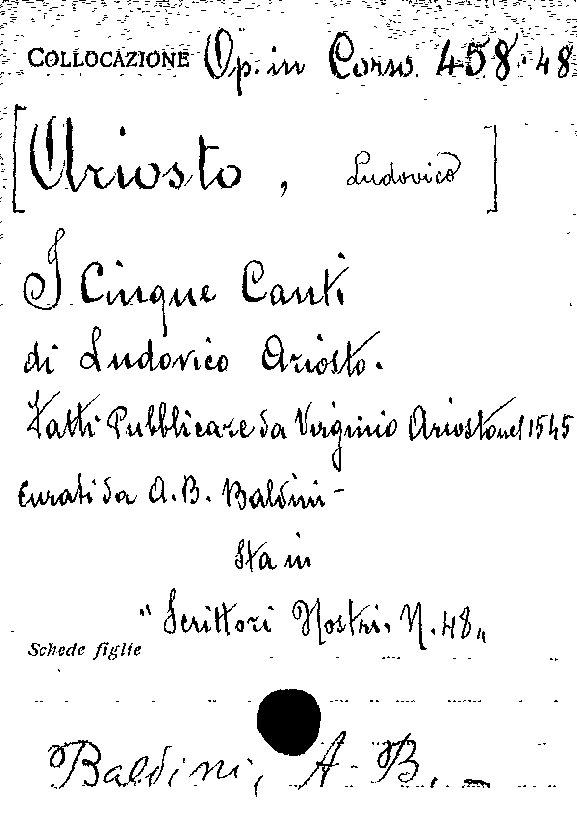 COLLOCAZIONE Op. in Corso. 458.48
[Ariosto, Ludovico]
I Cinque Canti
di Ludovico Ariosto.
Fatti Pubblicare da Virginio Ariosto nel 1545
curati da A. B. Baldini -
Sta in
"Scrittori Nostri. N. 48"
Schede figlie
Baldini, A. B. -